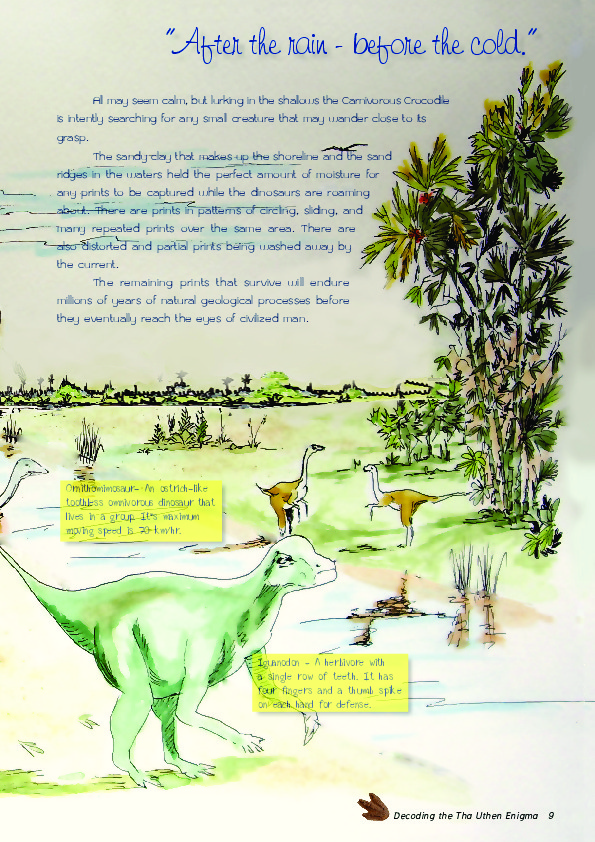 "After the rain - before the cold."
All may seem calm, but lurking in the shallows the Carnivorous Crocodile
is intently searching for any small creature that may wander close to its
grasp.
The sandy-clay that makes up the shoreline and the sand
ridges in the waters held the perfect amount of moisture for
any prints to be captured while the dinosaurs are roaming
about. There are prints in patterns of circling, sliding, and
many repeated prints over the same area. There are
also distorted and partial prints being washed away by
the current.
The remaining prints that survive will endure
millions of years of natural geological processes before
they eventually reach the eyes of civilized man.
Ornithomimosaur- An ostrich-like
toothless omnivorous dinosaur that
lives in a group. It's maximum
moving speed is 70 km/hr.
Iguanodon - A herbivore with
a single row of teeth. It has
four fingers and a thumb spike
on each hand for defense.
Decoding the Tha Uthen Enigma 9